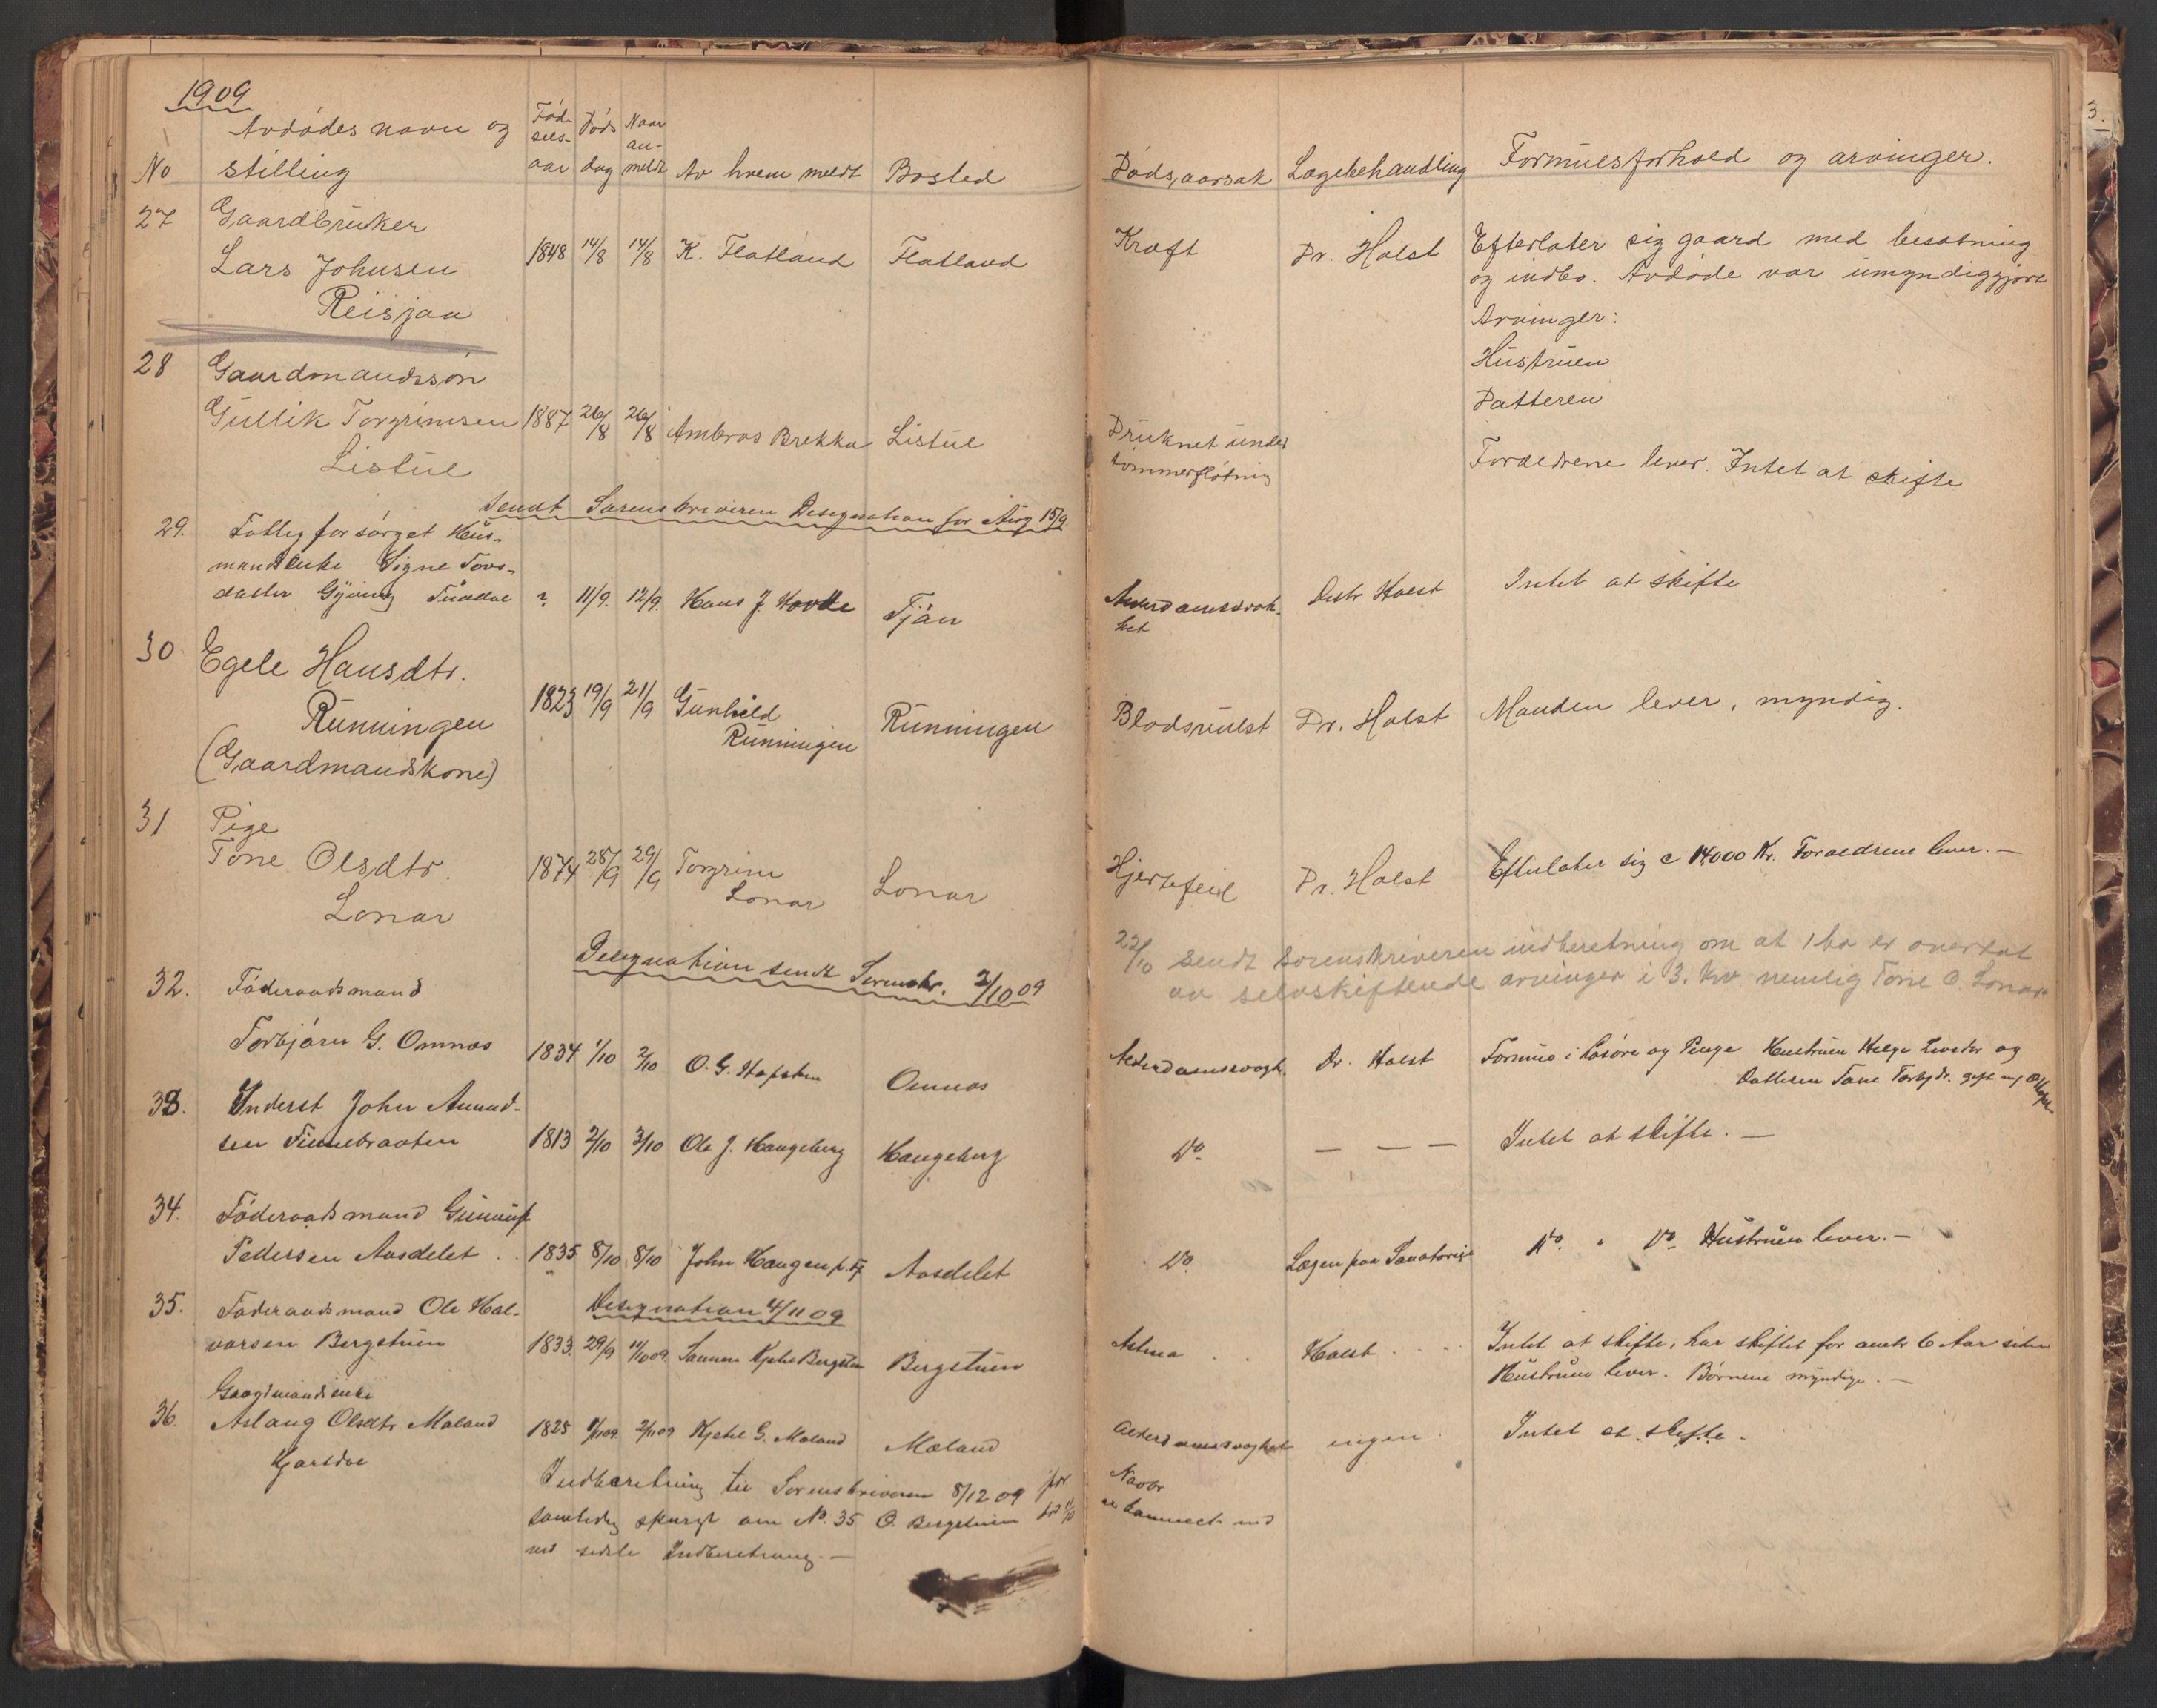 1909
No Avdødes navn og stilling Fødselsaar Dødsdag Naar anmeldt Av hvem meldt Bosted Dødsaarsak Lægebehandling Formuesforhold og arvinger.
27 Gaardbruker
Lars Johnsen 1848 14/8 14/8 K. Flatland Flatland Kræft Dr. Holst Efterlater sig gaard med besætning
Reisjaa og indbo. Avdøde var umyndiggjort
Arvinger:
Hustruen
Datteren
28 Gaardmandssøn
Gullik Torgrimsen 1887 26/8 26/8 Ambros Brekka Listul Druknet under
Listul tømmerfløtning Forældrene lever. Intet at skifte
Sendt Sorenskriveren Designation for Aug 15/9.
29. Fattigforsørget Hus-
mandsenke Signe Tovs-
datter Gjuving Tuddal ? 11/9. 12/9. Hans J. Hovde Tjån Alderdomssvak- Distr Holst Intet at skifte
het
30 Egele Hansdtr.
Runningen 1823 19/9 21/9 Gunhild Runningen Blodsvulst Dr. Holst Manden lever, myndig.
(Gaardmandskone) Runningen
31 Pige
Tone Olsdtr. 1874 28/9 29/9 Torgrim Lonar Hjertefeil Dr. Holst Efterlater sig c 14000 Kr. Forældrene lever. —
Lonar Lonar
Designation sendt Sorenskr. 2/10 09
22/10 sendt sorenskriveren indberetning om at 1 bo er overtat
av selvskiftende arvinger i 3. kv. nemlig Tone O. Lonar
32. Føderaadsmand
Torbjørn G. Omnæs 1834 1/10 2/10 O. G. Omnæs Alderdomssvagh. Dr. Holst Formue i Løsøre og Penge Hustruen Helge og
Datteren Tone gift m/
33. Inderst John Amund-
sen Finnebraaten 1813 2/10 3/10 Ole J. Haugeberg Haugeberg Do — — — Intet at skifte. —
34. Føderaadsmand Gunnulf
Pedersen Aasdelet 1835 8/10 8/10 John Haugen Aasdelet Do Lægen paa Sanatoriet Do. " Do Hustruen lever. —
Designation 4/11 09
35. Føderaadsmand Ole Hal-
vorsen Bergstuen 1833. 29/9 11/10 09 Sønnen Kjetil Bergstuen Bergstuen Astma Holst Intet at skifte, har skiftet for omtr 6 Aar siden
Hustruen lever. Børnene myndige. —
Gaardmandsenke
36. Aslaug Olsdtr Mæland 1825 1/11 09 2/11 09 Kjetil G. Mæland Mæland Alderdomssvaghet ingen Intet at skifte.
Indberetning til Sorenskriveren 8/12 09 for Novbr
samtidig spurgt om No. 35 O. Bergstuen er kommet med
ved sidste Indberetning. —